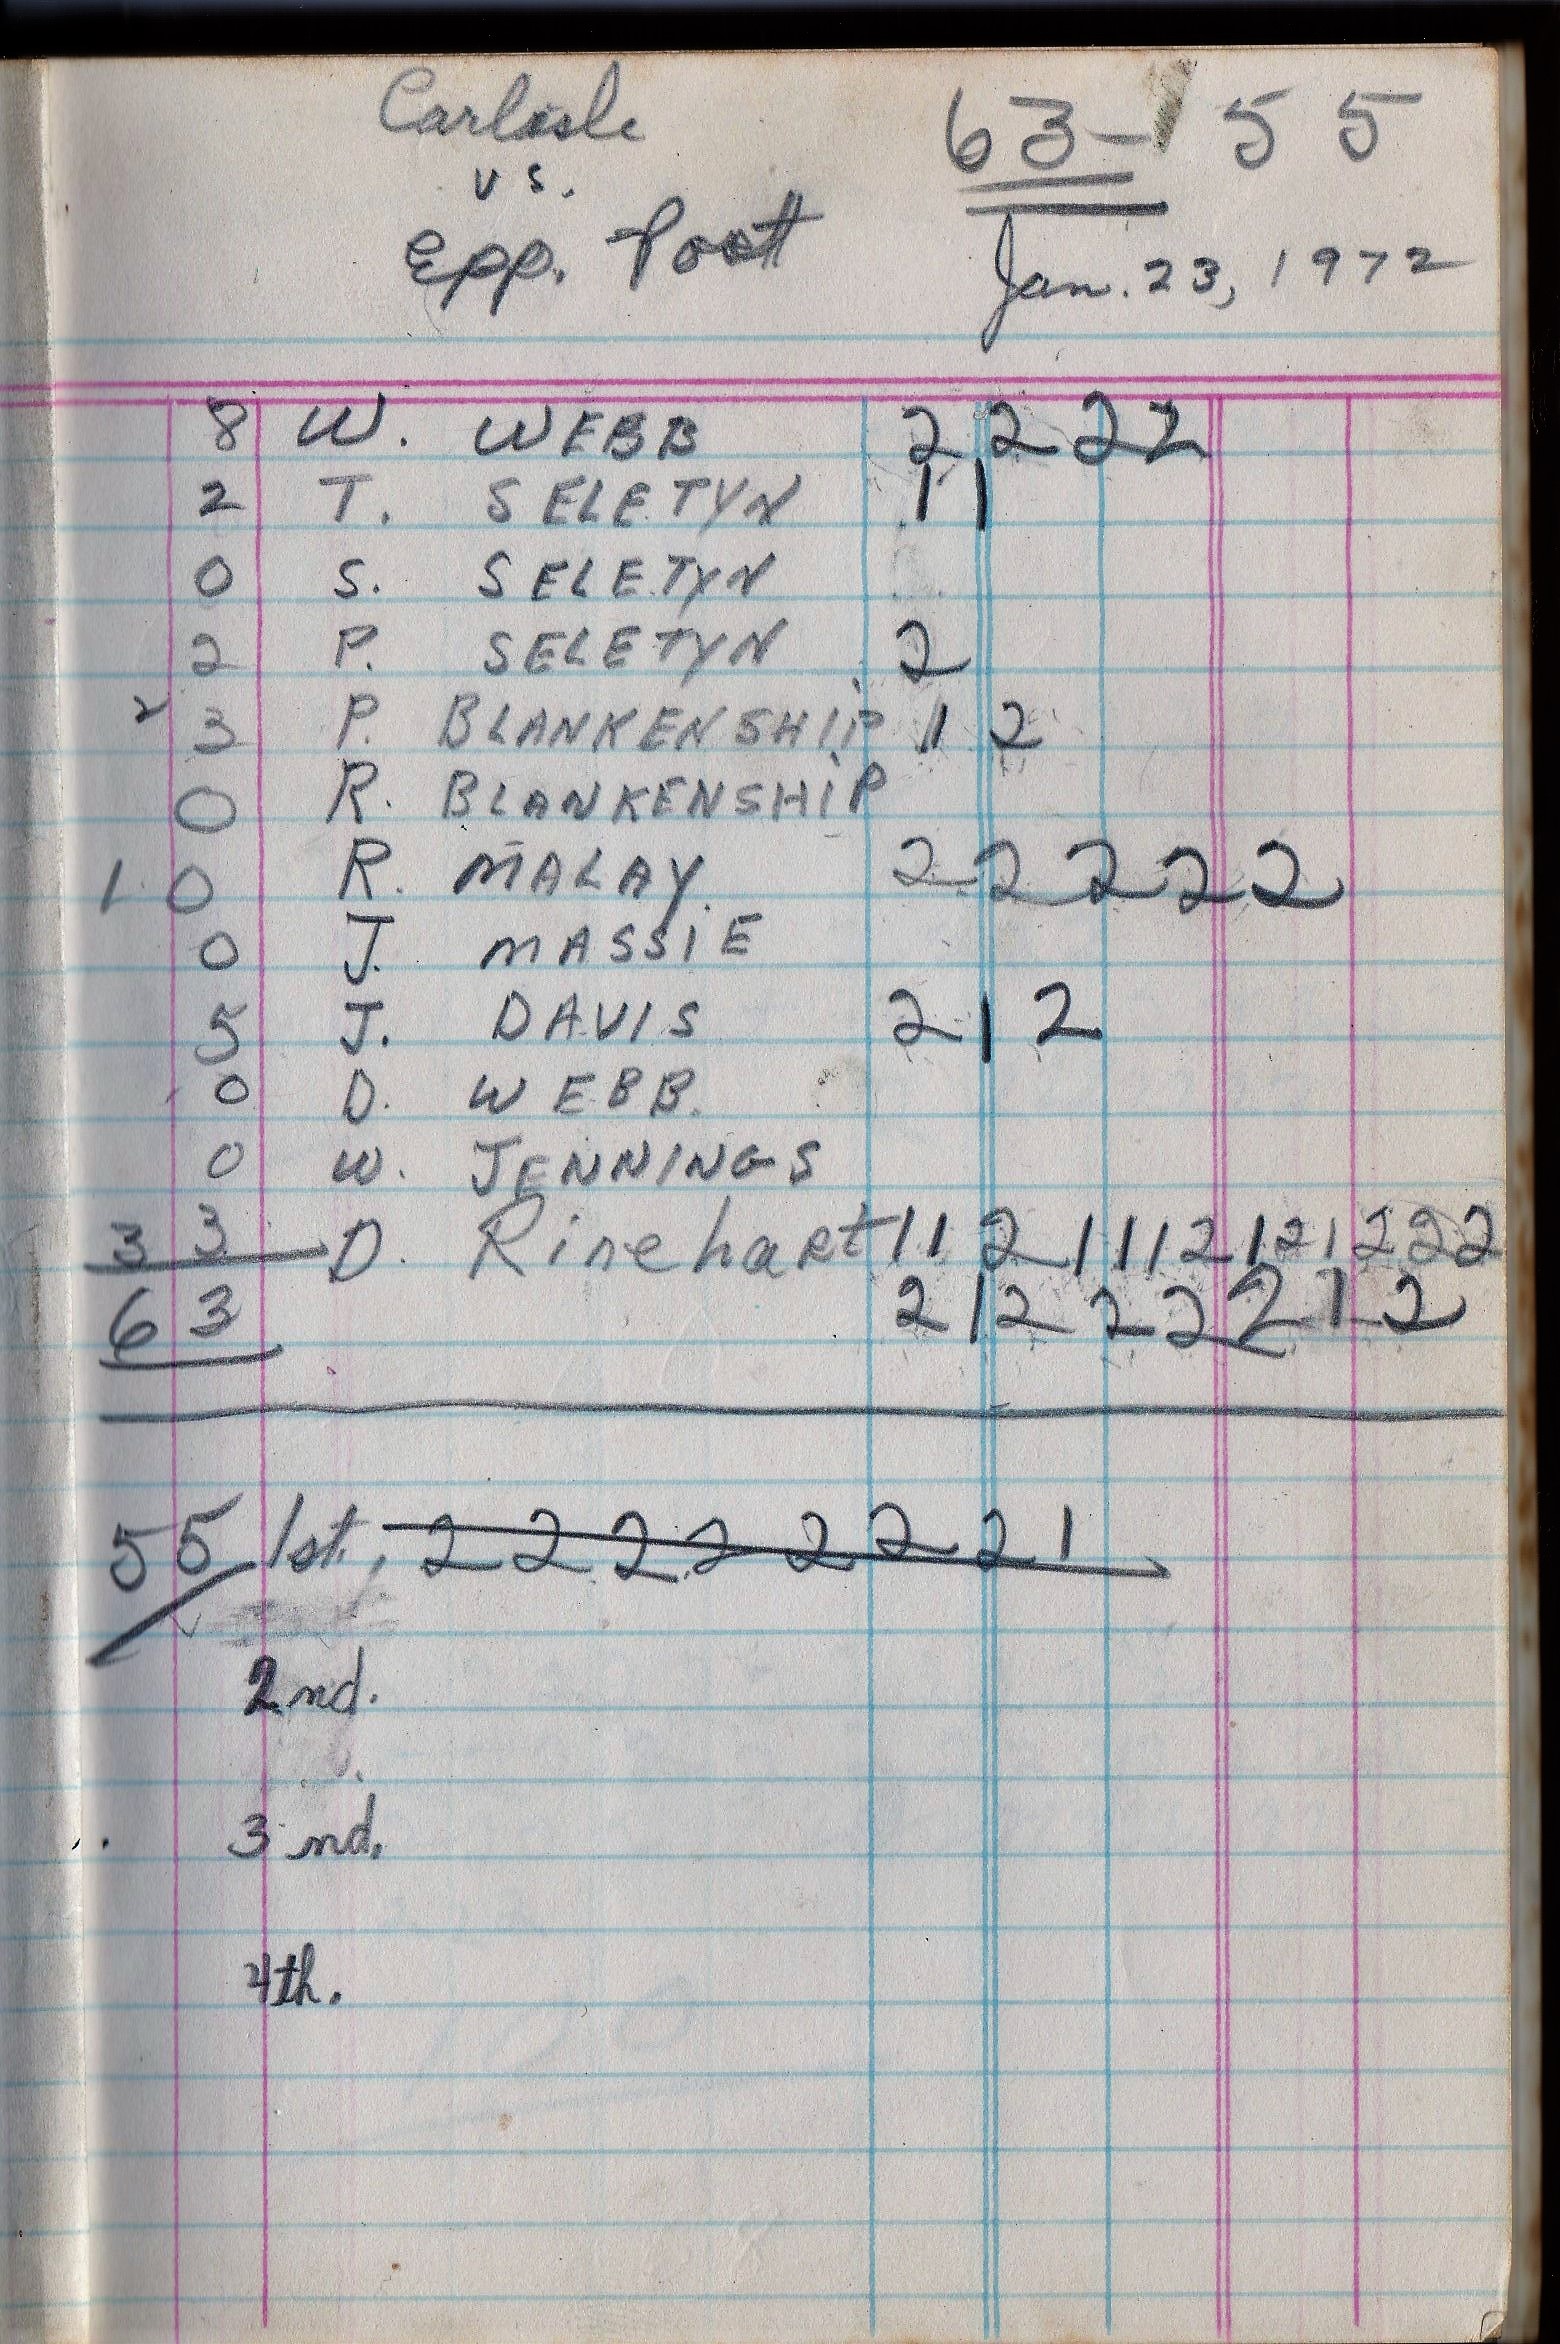 Carlisle 63 - 55
vs.
Epp. Post Jan. 23, 1972
8 W. WEBB 2 2 2 2
2 T. SELETYN 1 1
0 S. SELETYN
2 P. SELETYN 2
2 3 P. BLANKENSHIP 1 2
0 R. BLANKENSHIP
10 R. MALAY 2 2 2 2 2
0 J. MASSIE
5 J. DAVIS 2 1 2
0 D. WEBB.
0 W. JENNINGS
33 D. Rinehart 1 1 2 1 1 1 2 1 2 1 2 2 2
63 2 1 2 2 2 2 1 2
55 1st. 2 2 2 2 2 2 2 1
2nd.
3nd.
4th.